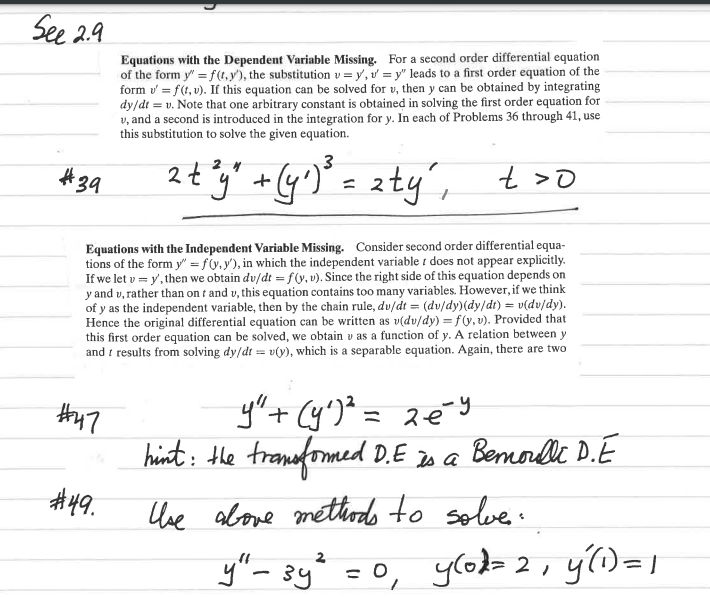 See 2.9
Equations with the Dependent Variable Missing. For a second order differential equation
of the form y″ = f(t, y′), the substitution v = y′, v′ = y″ leads to a first order equation of the
form v′ = f(t, v). If this equation can be solved for v, then y can be obtained by integrating
dy/dt = v. Note that one arbitrary constant is obtained in solving the first order equation for
v, and a second is introduced in the integration for y. In each of Problems 36 through 41, use
this substitution to solve the given equation.
#39 2t²y″ + (y′)³ = 2ty′, t > 0
Equations with the Independent Variable Missing. Consider second order differential equa-
tions of the form y″ = f(y, y′), in which the independent variable t does not appear explicitly.
If we let v = y′, then we obtain dv/dt = f(y, v). Since the right side of this equation depends on
y and v, rather than on t and v, this equation contains too many variables. However, if we think
of y as the independent variable, then by the chain rule, dv/dt = (dv/dy)(dy/dt) = v(dv/dy).
Hence the original differential equation can be written as v(dv/dy) = f(y, v). Provided that
this first order equation can be solved, we obtain v as a function of y. A relation between y
and t results from solving dy/dt = v(y), which is a separable equation. Again, there are two
#47 y″ + (y′)² = 2e⁻ʸ
hint: the transformed D.E is a Bernoulli D.E
#49. Use above methods to solve:
y″ - 3y² = 0, y(0) = 2, y′(1) = 1